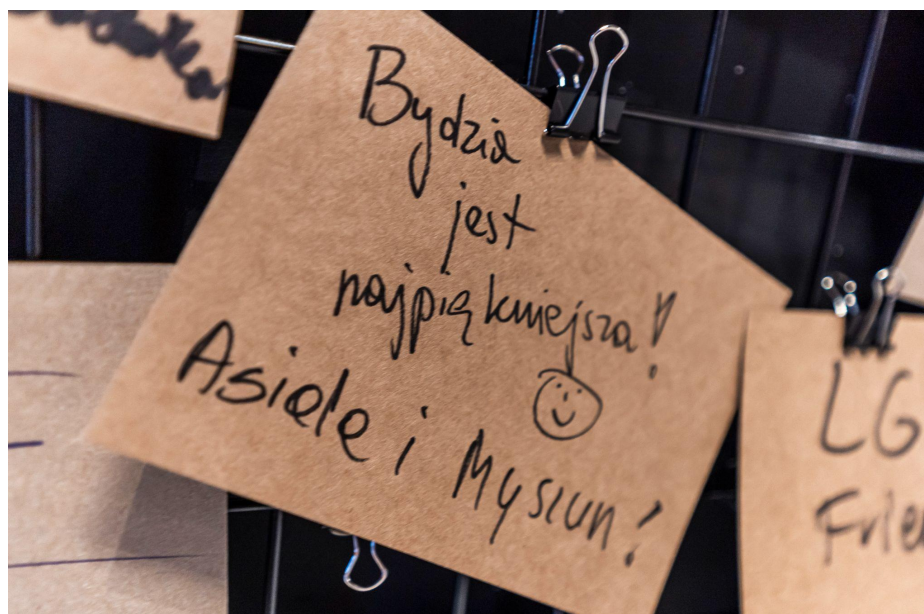 Bydzia
jest
najpiękniejsza!
Asiele i Mysiun!
LG